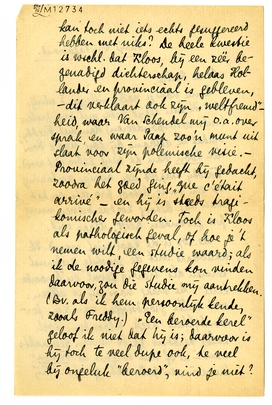 M12734
kan toch niet iets echts gesuggereerd
hebben met niks? De heele kwestie
is wschl. dat Kloos, bij een zéér be-
genadigd dichterschap, helaas Hol-
landsch en provinciaal is gebleven,
— dit verklaart ook zijn „weltfremd"-
heid, waar Van Schendel mij o.a. over
sprak en waar Jaap zoo'n munt uit
slaat voor zijn polemische visie. —
Provinciaal zijnde heeft hij gedacht,
zoodra het goed ging, „que c'était
arrivé" — en hij is steeds tragi-
komischer geworden. Toch is Kloos
als pathologisch geval, of hoe je 't
nemen wilt, een studie waard; als
ik de noodige gegevens kon vinden
daarvoor, zou die studie mij aantrekken.
(Bv. als ik hem persoonlijk kende,
zooals Freddy.) — „Een beroerde kerel"
geloof ik niet dat hij is; daarvoor is
hij toch te veel dupe ook, te veel
bij ongeluk „beroerd", vind je niet?